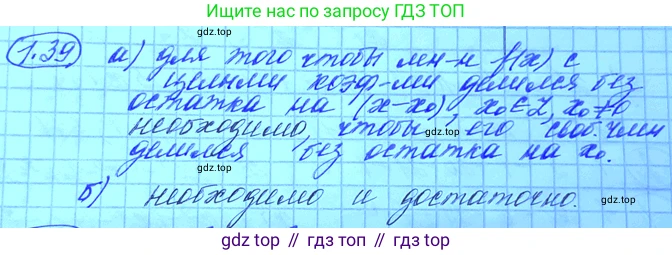 Ищите нас по запросу ГДЗ ТОП
1.39 а) для того чтобы мн-н f(x) с
целыми коэф-ми делился без
остатка на (x-x₀), x₀∈Z, x₀≠0
необходимо, чтобы его своб. член
gdz.top
делился без остатка на x₀.
б) необходимо и достаточно.
gdz top // гдз топ // gdz.top // гдз топ